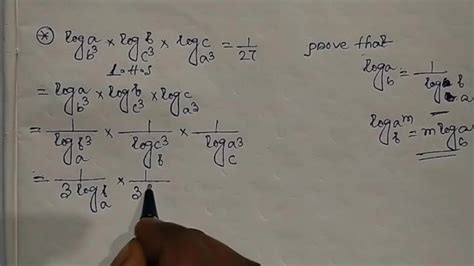 ⊛ log_{b³} a × log_{c³} b × log_{a³} c = 1/27
L.H.S
= log_{b³} a × log_{c³} b × log_{a³} c
= 1/log_a b³ × 1/log_b c³ × 1/log_c a³
= 1/3 log_a b × 1/3
prove that
log_b a = 1/log_a b
log_b a^m = m log_b a